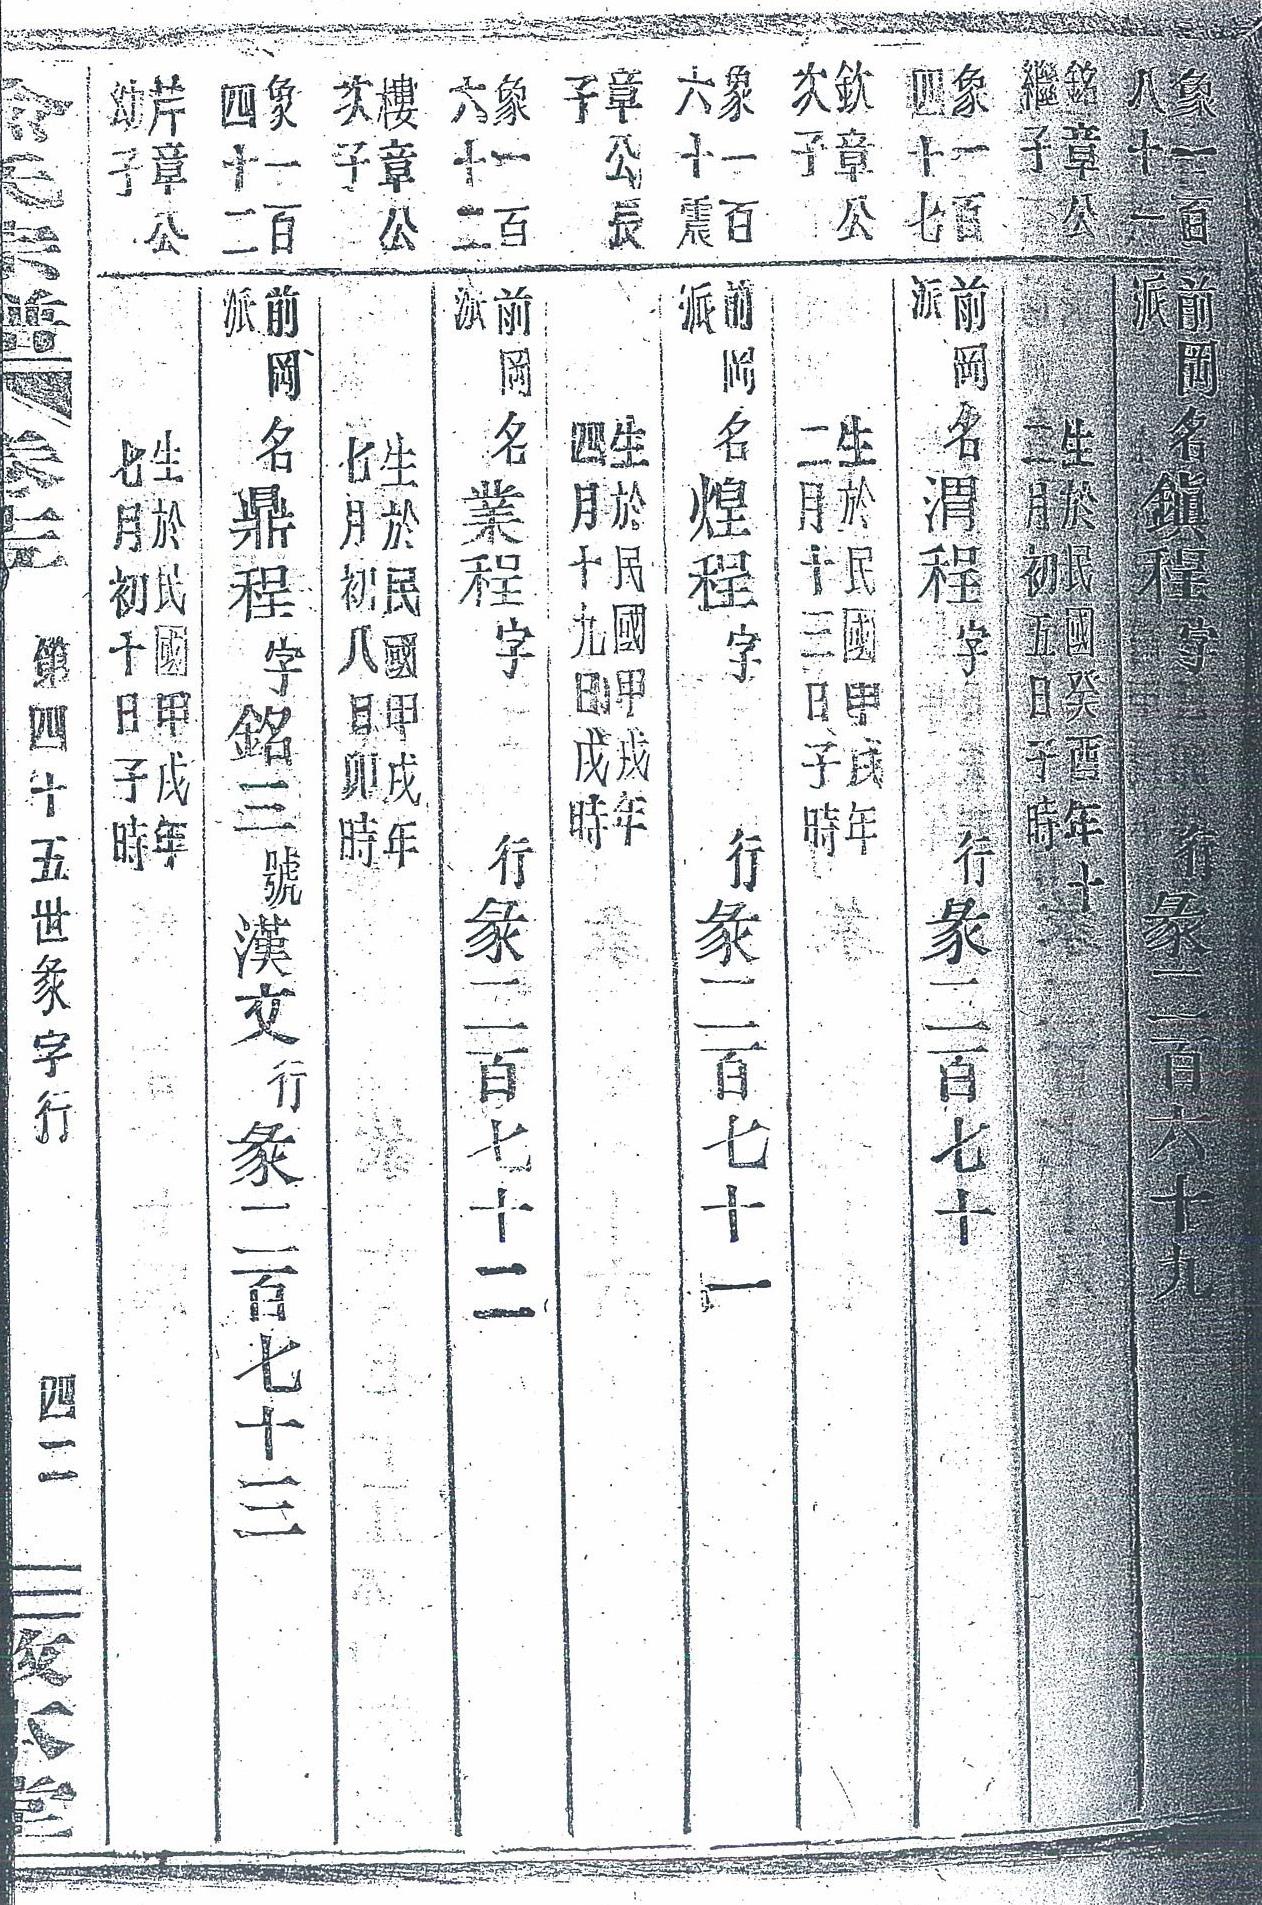 象一百
八十一
前岡
派
名鎮程字 行彖二百六十九
銘章公
繼子
生於民國癸酉年十
二月初五日子時
象一百
四十七
前岡
派
名渭程字 行彖二百七十
欽章公
次子
生於民國甲戌年
二月十三日子時
象一百
六十震
前岡
派
名煌程字 行彖二百七十一
章公長
子
生於民國甲戌年
四月十九日戌時
象一百
六十二
前岡
派
名業程字 行彖二百七十二
樓章公
次子
生於民國甲戌年
七月初八日卯時
象一百
四十二
前岡
派
名鼎程字銘三號漢文行彖二百七十三
芹章公
幼子
生於民國甲戌年
七月初十日子時
氏宗譜 卷七 第四十五世彖字行 四二 敦本堂